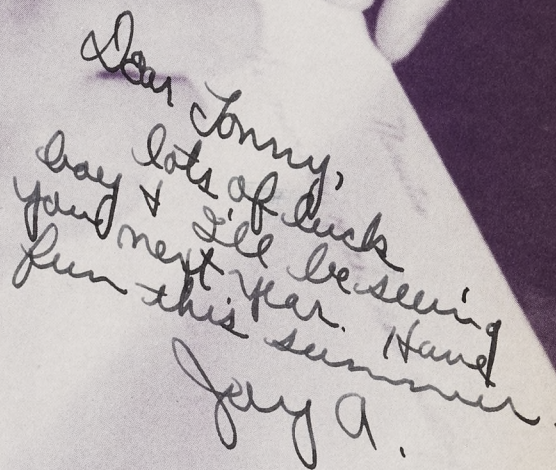 Dear Tonny,
lots of luck
boy & I'll be seeing
you next year. Have
fun this summer.
Jay A.